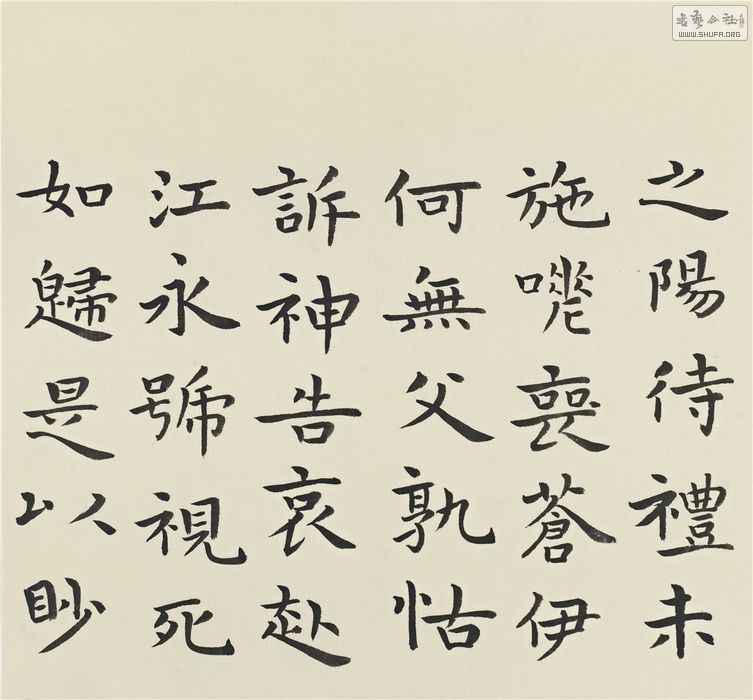 之陽待禮未
施嗟喪蒼伊
何無父孰怙
訴神告哀赴
江永號視死
如歸是以眇
書藝公社
WWW.SHUFA.ORG